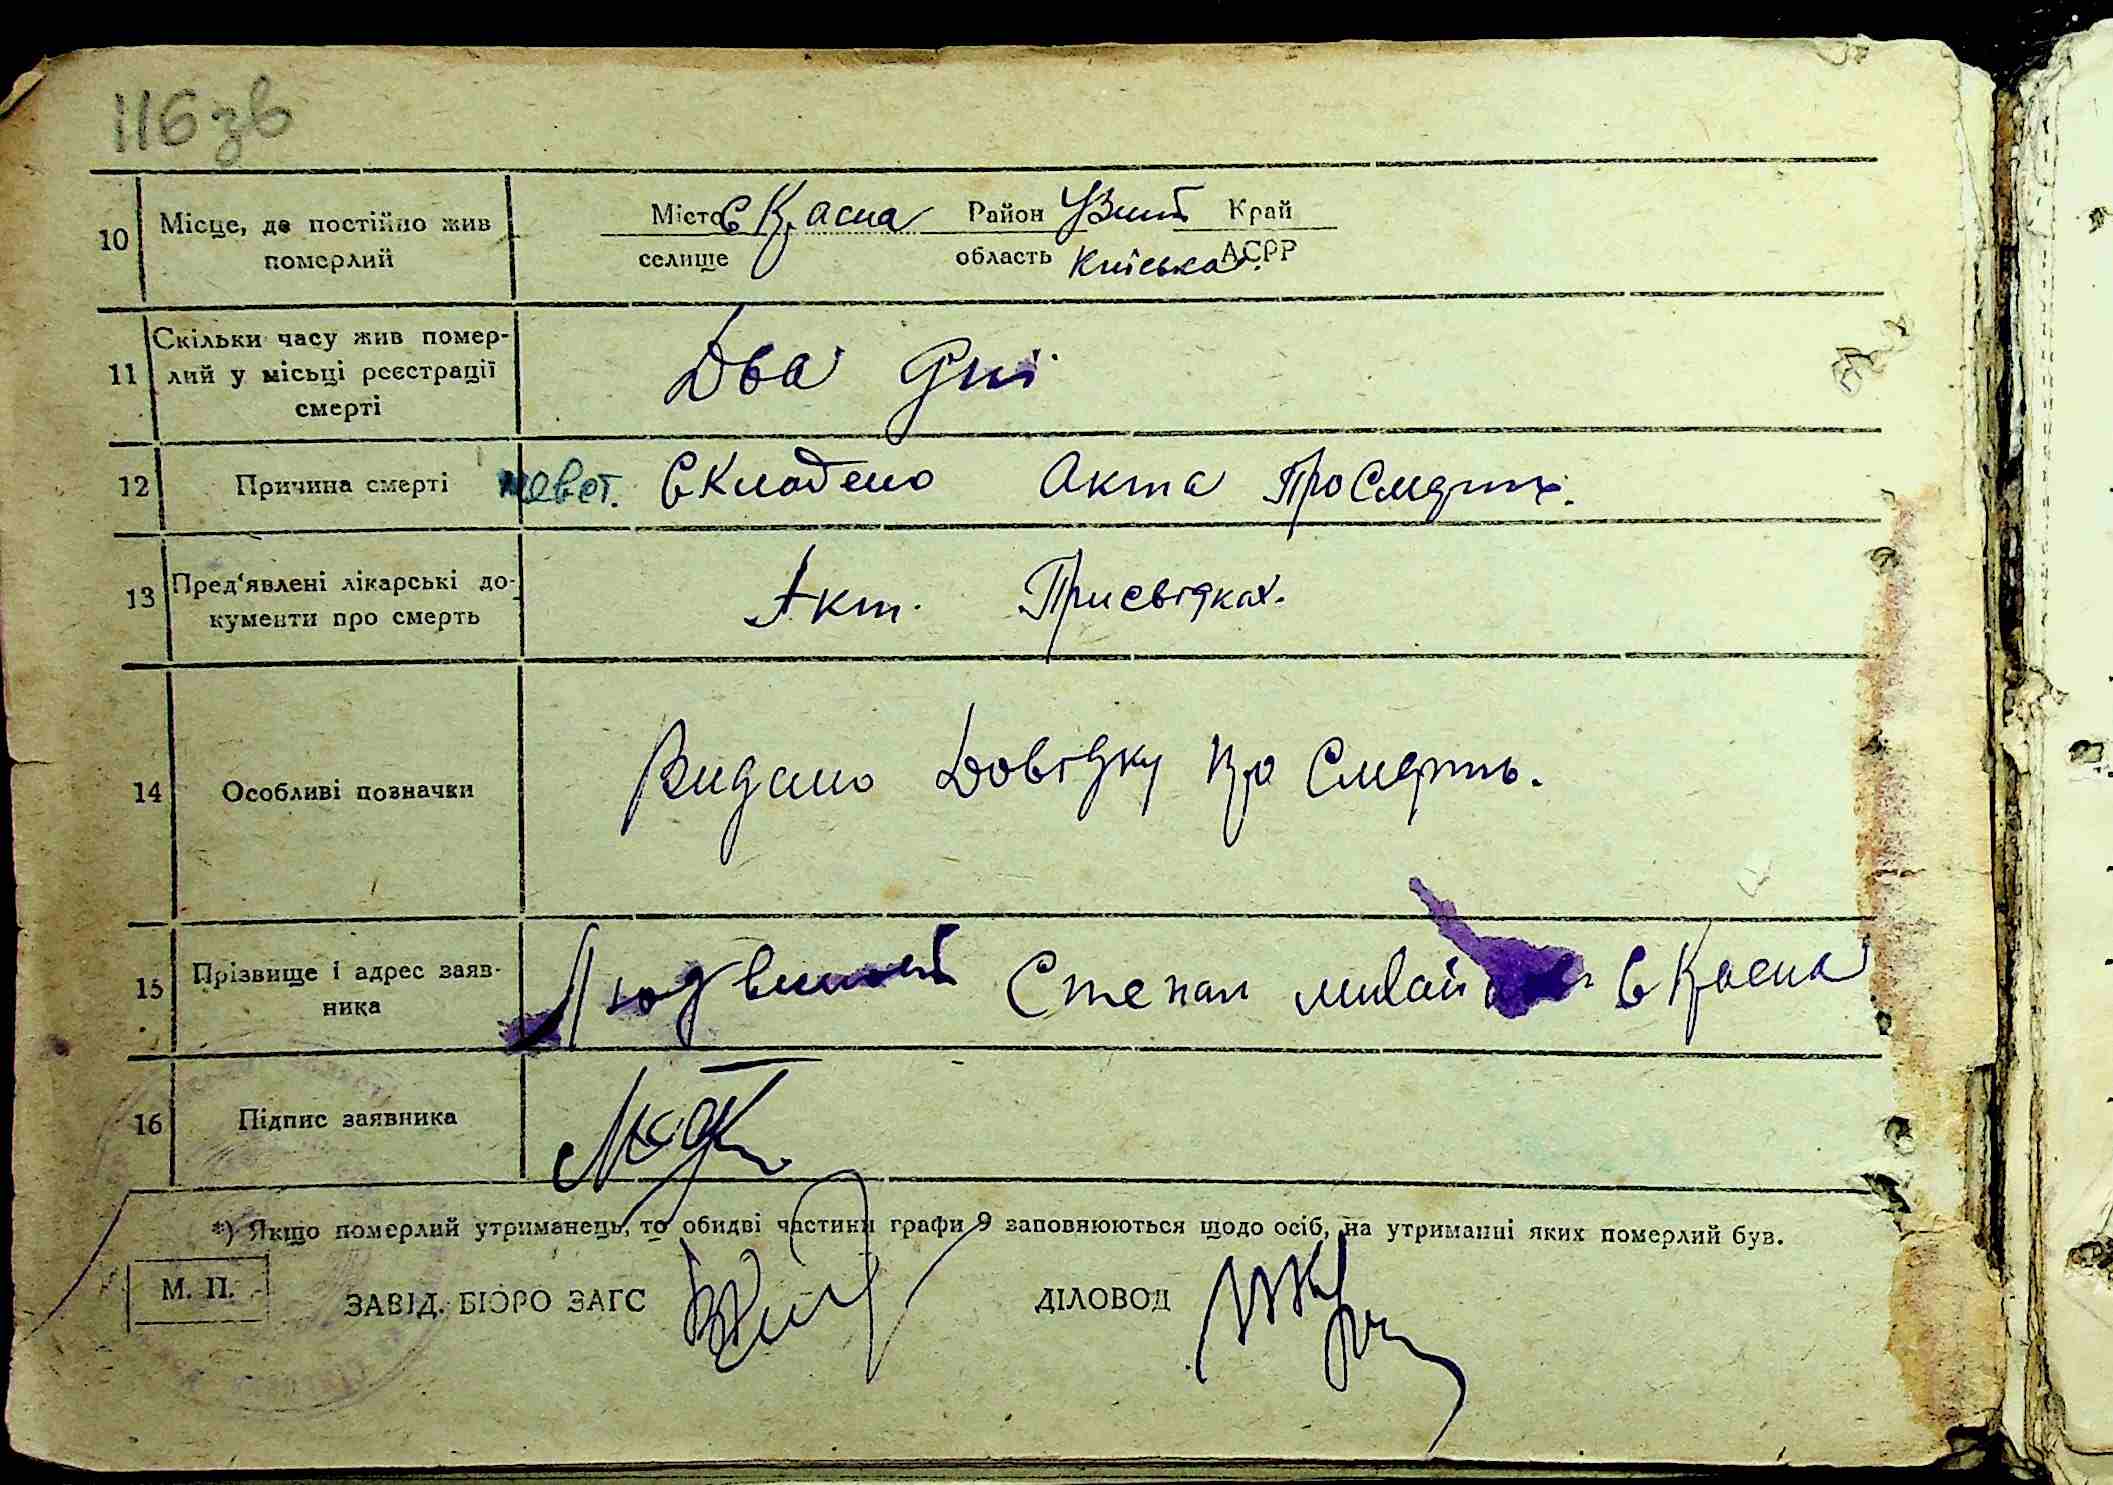 116 зв
10 Місце, де постійно жив померлий Місто с Красна Район Край
селище область Київська АСРР
11 Скільки часу жив помер-
лий у місьці реєстрації
смерті
Два дні
12 Причина смерті Складено Акта Про Смерть.
13 Пред'явлені лікарські до-
кументи про смерть
Акт. Присвідках.
14 Особливі позначки Видано Довідку про Смерть.
15 Прізвище і адрес заяв-
ника
Степан с Красна
16 Підпис заявника
*) Якщо померлий утриманець, то обидві частини графи 9 заповнюються щодо осіб, на утриманні яких померлий був.
М. П. ЗАВІД. БЮРО ЗАГС ДІЛОВОД